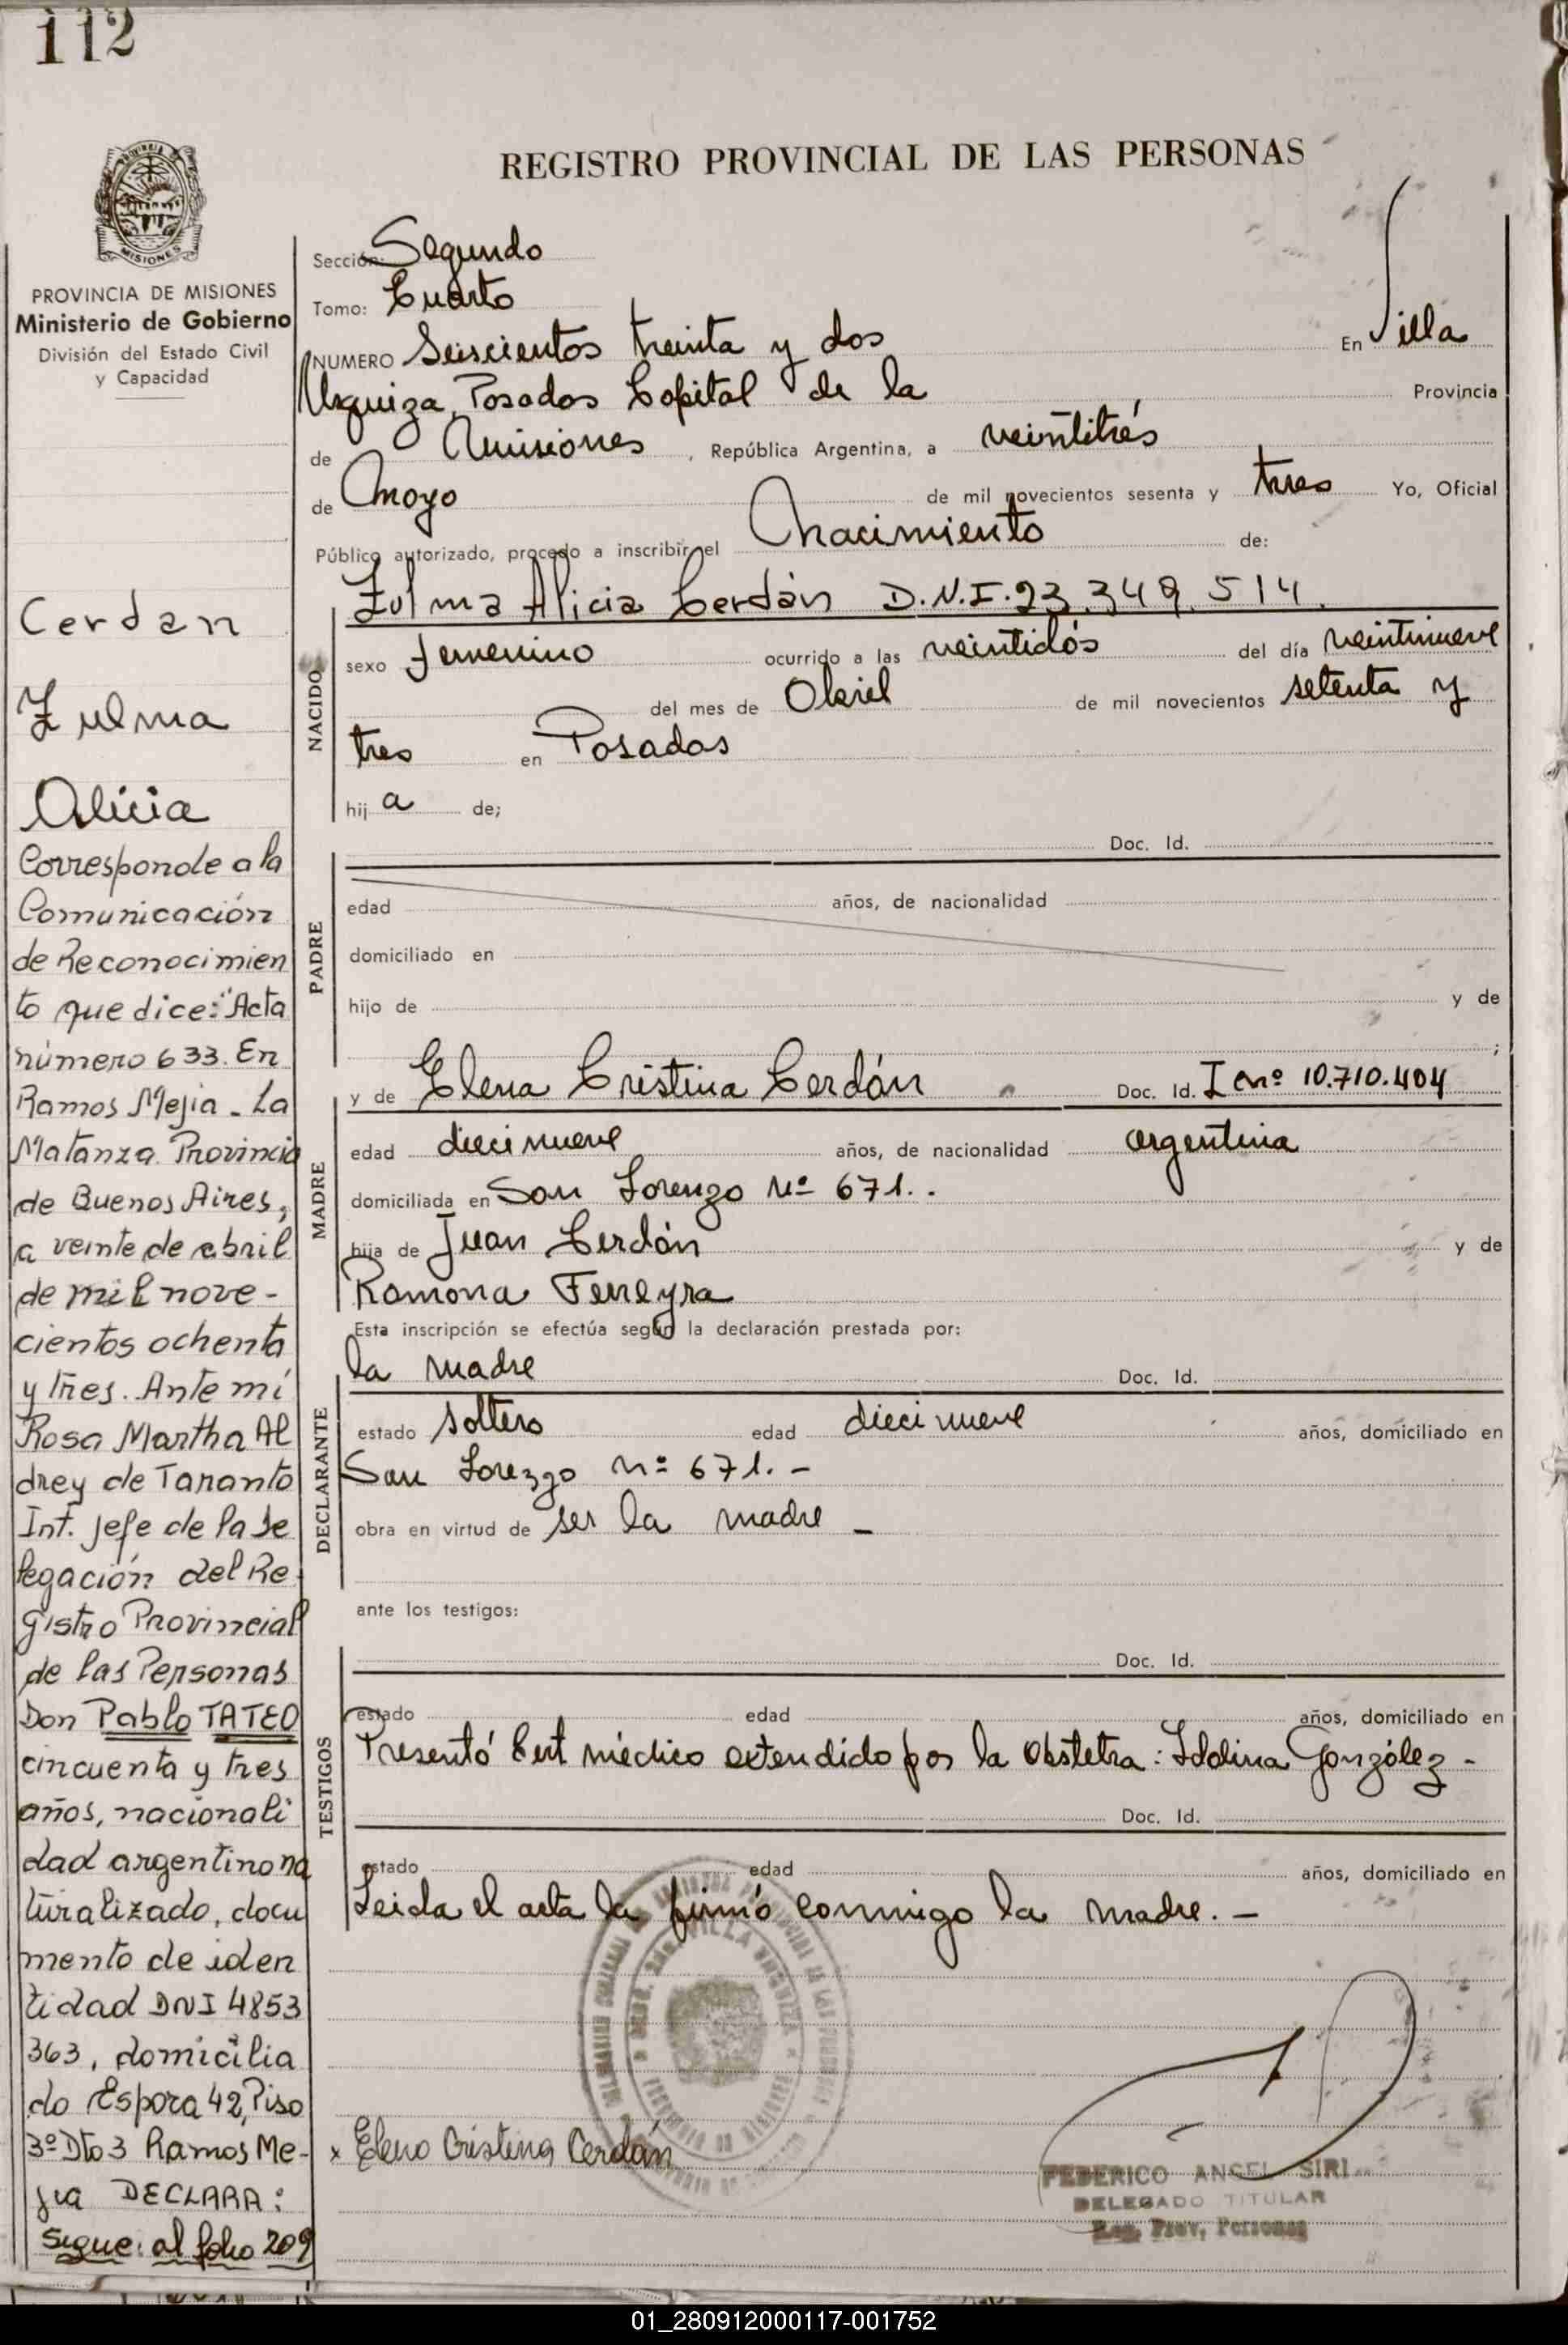 112
REGISTRO PROVINCIAL DE LAS PERSONAS
PROVINCIA DE MISIONES
Ministerio de Gobierno
División del Estado Civil
y Capacidad
Cerdan
Zulma
Alicia
Corresponde a la
Comunicación
de Reconocimien
to que dice: "Acta
número 633. En
Ramos Mejia - La
Matanza. Provincia
de Buenos Aires,
a veinte de abril
de mil nove-
cientos ochenta
y tres. Ante mí
Rosa Martha Al
drey de Taranto
Int. Jefe de la De
legación del Re
gistro Provincial
de las Personas
Don Pablo TATEO
cincuenta y tres
años, nacionali
dad argentino na
turalizado, docu
mento de iden
tidad DNI 4853
363, domicilia
do Espora 42, Piso
3º Dto 3 Ramos Me-
jia DECLARA:
Sigue: al folio 209
Sección: Segundo
Tomo: Cuarto
NUMERO Seiscientos treinta y dos En Villa
Urquiza, Posadas Capital de la Provincia
de Misiones, República Argentina, a veintitrés
de Mayo de mil novecientos sesenta y tres Yo, Oficial
Público autorizado, procedo a inscribir el Nacimiento de:
Zulma Alicia Cerdán D.N.I. 23.349.514.
NACIDO
sexo femenino ocurrido a las veintidós del día veintinueve
del mes de Abril de mil novecientos setenta y
tres en Posadas
hij a de;
Doc. Id.
PADRE
edad años, de nacionalidad
domiciliado en
hijo de y de
;
y de Elena Cristina Cerdán Doc. Id. I nº 10.710.404
MADRE
edad diecinueve años, de nacionalidad argentina
domiciliada en San Lorenzo Nº 671..
hija de Juan Cerdán y de
Ramona Ferreyra
Esta inscripción se efectúa según la declaración prestada por:
la madre Doc. Id.
DECLARANTE
estado soltera edad diecinueve años, domiciliado en
San Lorenzo nº 671. -
obra en virtud de ser la madre -
ante los testigos:
Doc. Id.
TESTIGOS
estado edad años, domiciliado en
Presentó Cert médico extendido por la Obstetra: Idolina González -
Doc. Id.
estado edad años, domiciliado en
Leida el acta la firmó conmigo la madre. -
VILLA URQUIZA
x Elena Cristina Cerdán
FEDERICO ANGEL SIRI
DELEGADO TITULAR
Reg. Prov. Personas
01_280912000117-001752